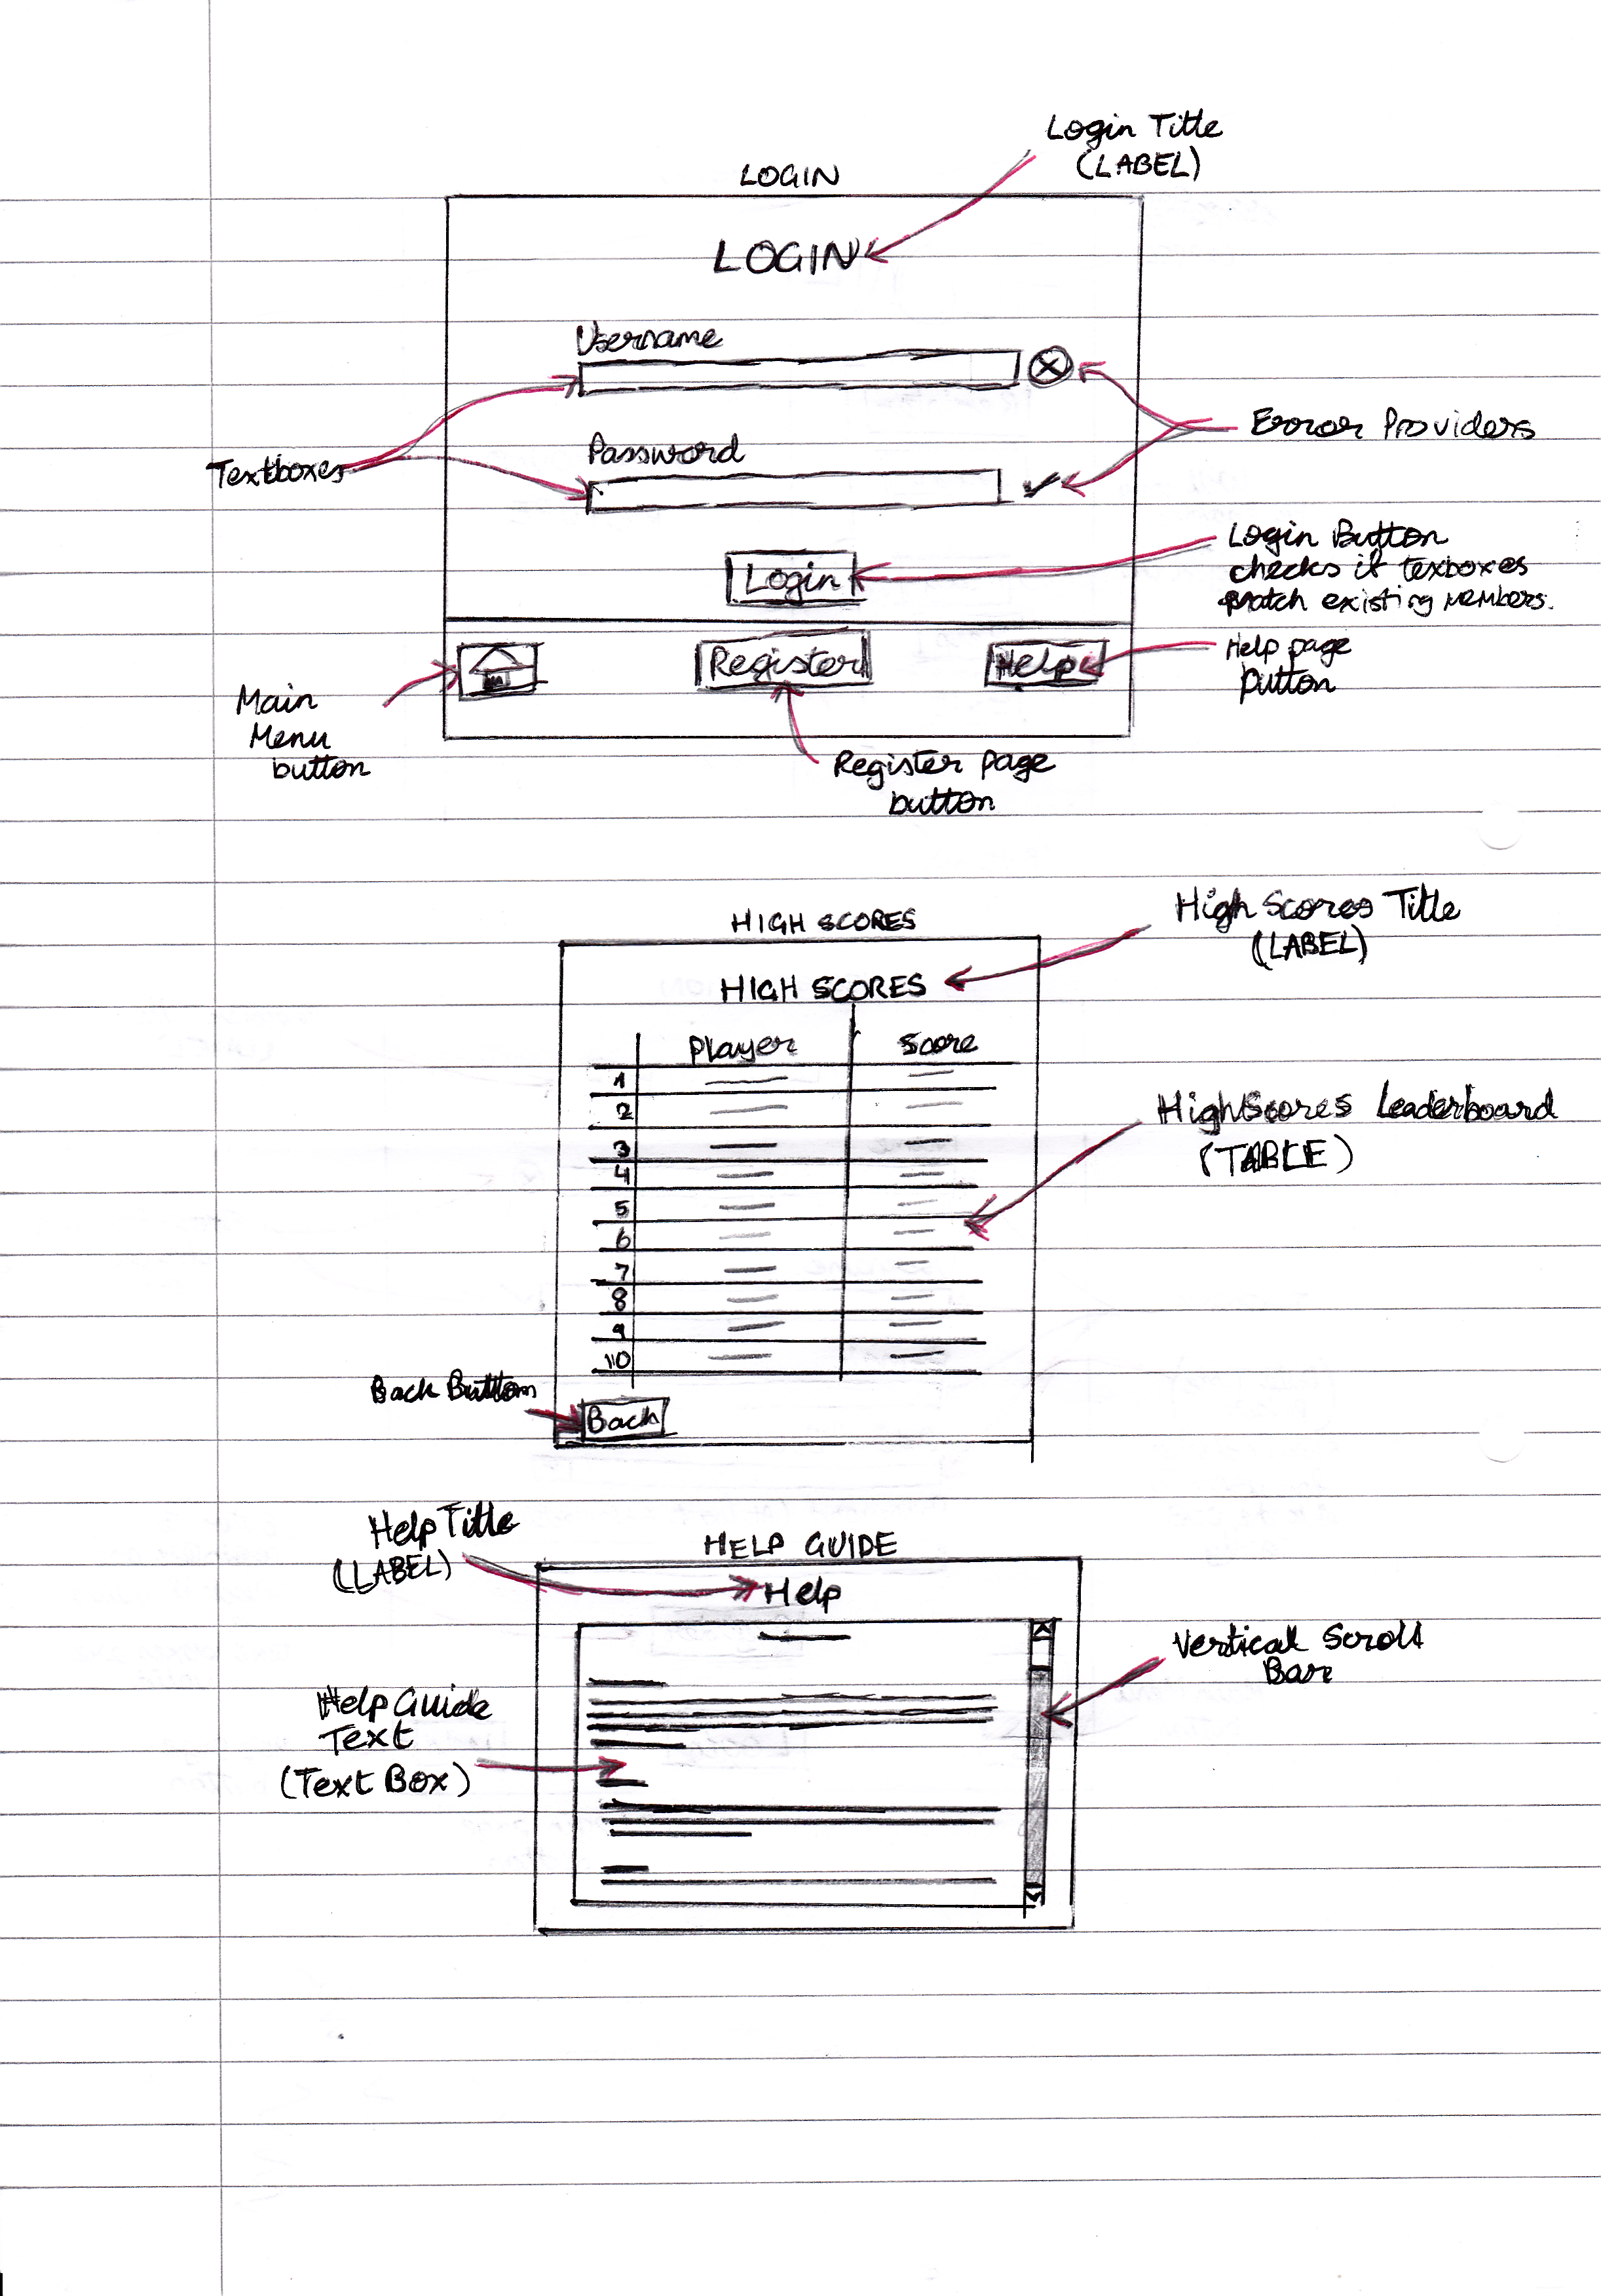 Login Title
(LABEL)
LOGIN
LOGIN
Username
Error Providers
Password
Textboxes
Login Button
checks if texboxes
match existing members.
Login
Register
Help
Help page
button
Main
Menu
button
Register page
button
High Scores Title
(LABEL)
HIGH SCORES
HIGH SCORES
Player Score
1
2
3
4
5
6
7
8
9
10
HighScores Leaderboard
(TABLE)
Back Button
Back
Help Title
(LABEL)
HELP GUIDE
Help
Vertical Scroll
Bar
Help Guide
Text
(Text Box)